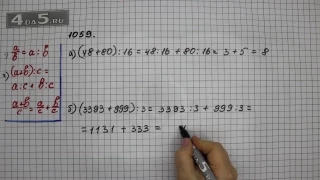 4DA5.RU
1059.
a/b = a:b
(a+b):c =
a:c + b:c
a+b/c = a/c + b/c
а) (48+80):16 = 48:16 + 80:16 = 3+5 = 8
б) (3393+999):3 = 3393:3 + 999:3 =
= 1131 + 333 =